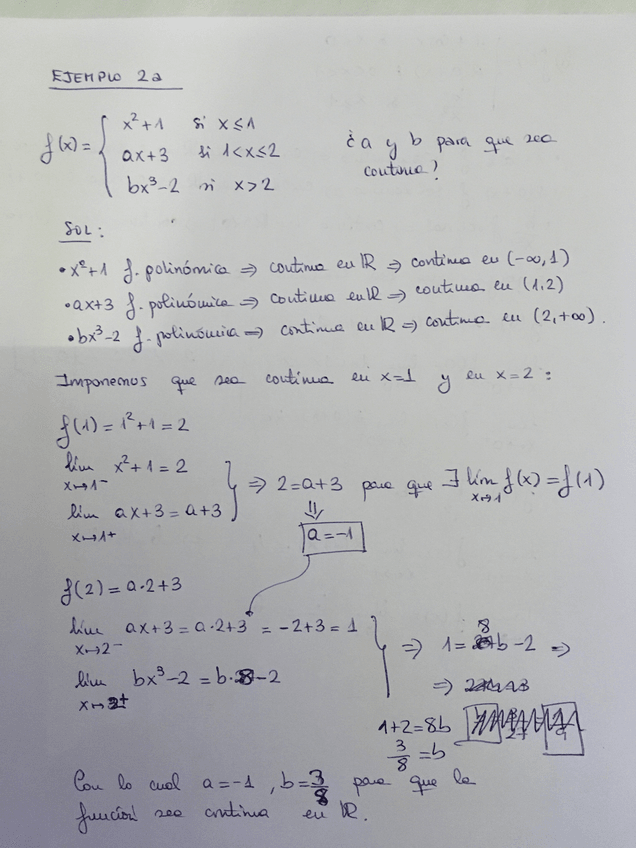 EJEMPLO 2a
f(x) = { x²+1 si x≤1
ax+3 si 1<x≤2
bx³-2 si x>2
¿a y b para que sea
continua?
SOL:
• x²+1 f. polinómica ⇒ continua en ℝ ⇒ continua en (-∞,1)
• ax+3 f. polinómica ⇒ continua en ℝ ⇒ continua en (1,2)
• bx³-2 f. polinómica ⇒ continua en ℝ ⇒ continua en (2,+∞).
Imponemos que sea continua en x=1 y en x=2:
f(1)=1²+1=2
lim x²+1=2
x→1⁻
lim ax+3=a+3
x→1+
} ⇒ 2=a+3 para que ∃ lim f(x)=f(1)
x→1
⇓
a=-1
f(2)=a·2+3
lim ax+3=a·2+3=-2+3=1
x→2⁻
lim bx³-2=b·8-2
x→2+
} ⇒ 1=8b-2 ⇒
⇒
1+2=8b
3/8=b
Con lo cual a=-1, b=3/8 para que la
función sea continua en ℝ.